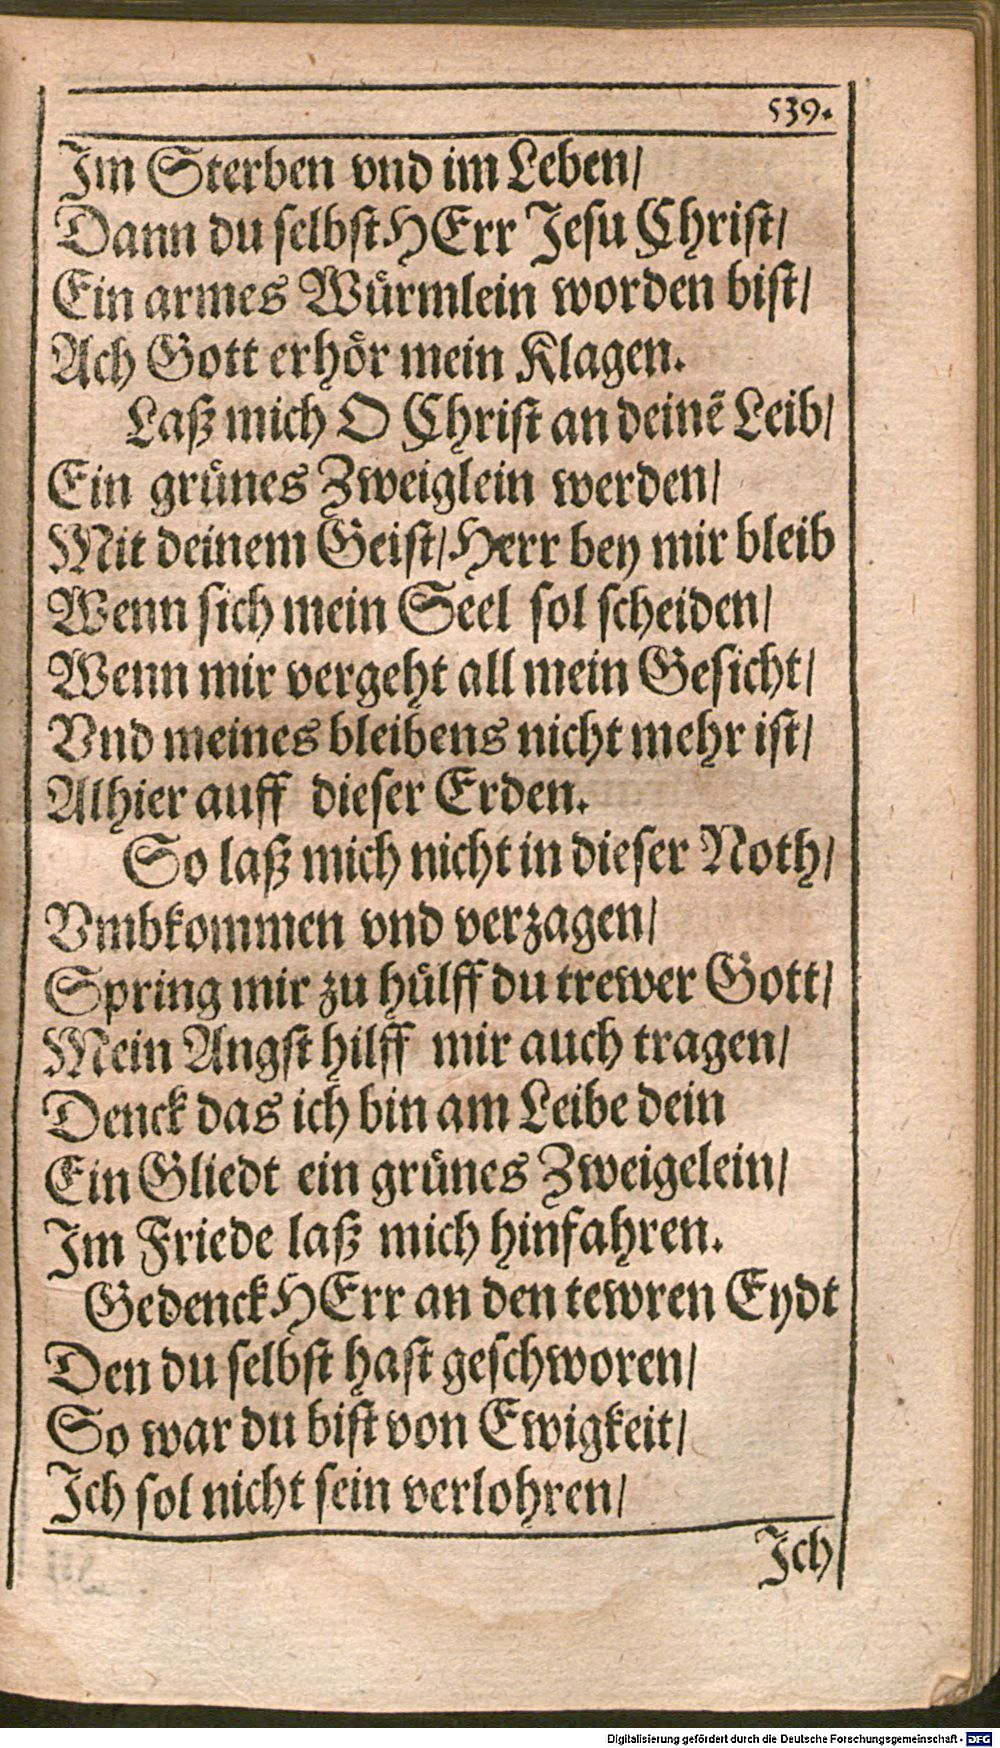 539.
Im Sterben vnd im Leben/
Dann du selbst HErr Jesu Christ/
Ein armes Würmlein worden bist/
Ach Gott erhör mein Klagen.
Laß mich O Christ an deinẽ Leib/
Ein grünes Zweiglein werden/
Mit deinem Geist/ Herr bey mir bleib
Wenn sich mein Seel sol scheiden/
Wenn mir vergeht all mein Gesicht/
Vnd meines bleibens nicht mehr ist/
Alhier auff dieser Erden.
So laß mich nicht in dieser Noth/
Vmbkommen vnd verzagen/
Spring mir zu hülff du trewer Gott/
Mein Angst hilff mir auch tragen/
Denck das ich bin am Leibe dein
Ein Gliedt ein grünes Zweigelein/
Im Friede laß mich hinfahren.
Gedenck HErr an den tewren Eydt
Den du selbst hast geschworen/
So war du bist von Ewigkeit/
Ich sol nicht sein verlohren/
Ich
Digitalisierung gefördert durch die Deutsche Forschungsgemeinschaft - DFG